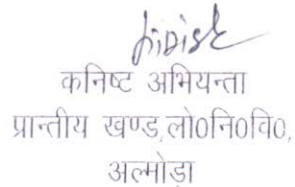 कनिष्ट अभियन्ता
प्रान्तीय खण्ड,लो0नि0वि0,
अल्मोड़ा